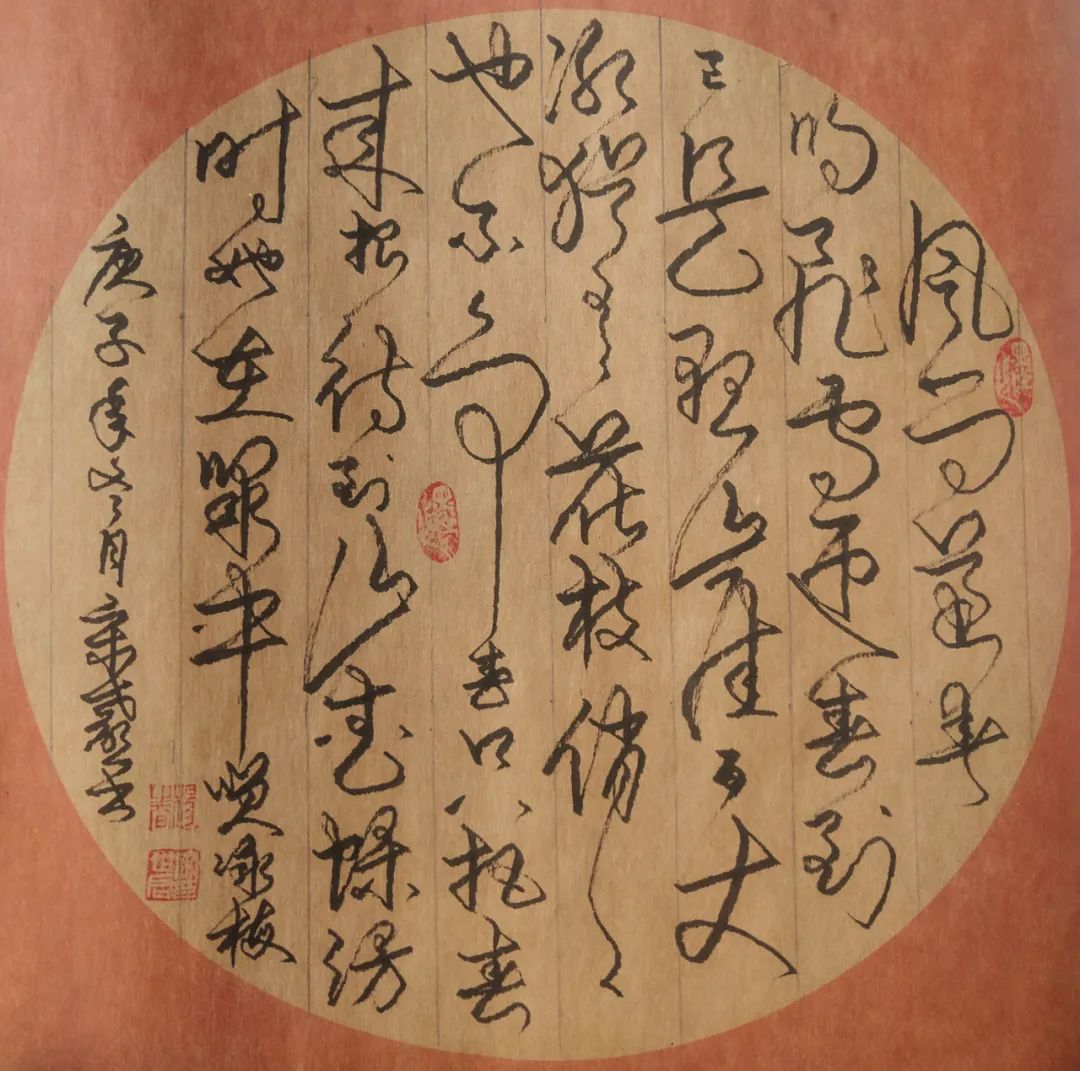 風雨送春
归飛雪迎春到
已是懸崖百丈
冰猶有花枝俏俏
也不争春只把春
来报待到山花爛漫
时她在叢中笑咏梅
庚子年冬月